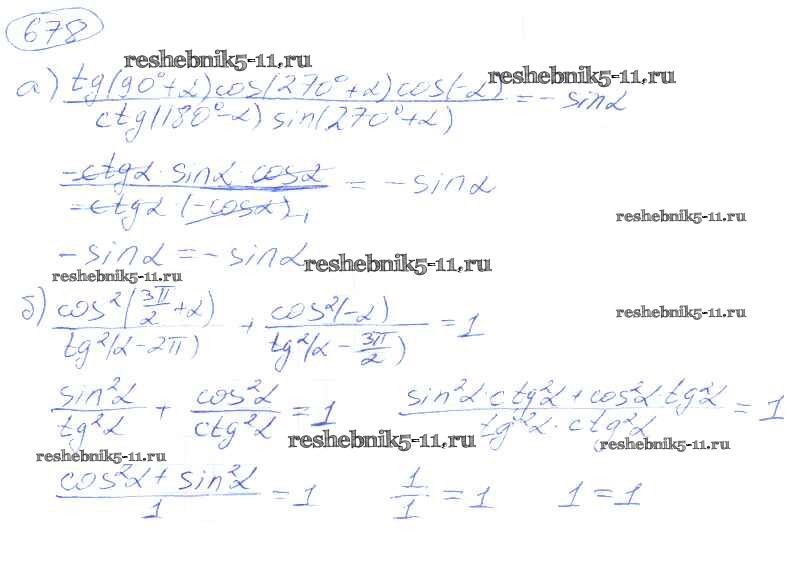 678
reshebnik5-11.ru
а) tg(90°+α)cos(270°+α)cos(-α) / ctg(180°-α) sin(270°+α) = - sinα
reshebnik5-11.ru
-ctgα · sinα · cosα / -ctgα · (-cosα) = - sinα
reshebnik5-11.ru
- sinα = - sinα
reshebnik5-11.ru
reshebnik5-11.ru
б) cos²(3π/2 + α) / tg²(α - 2π) + cos²(-α) / tg²(α - 3π/2) = 1
reshebnik5-11.ru
sin²α / tg²α + cos²α / ctg²α = 1
sin²α · ctg²α + cos²α tg²α / tg²α · ctg²α = 1
reshebnik5-11.ru
reshebnik5-11.ru
reshebnik5-11.ru
cos²α + sin²α / 1 = 1
1/1 = 1
1 = 1